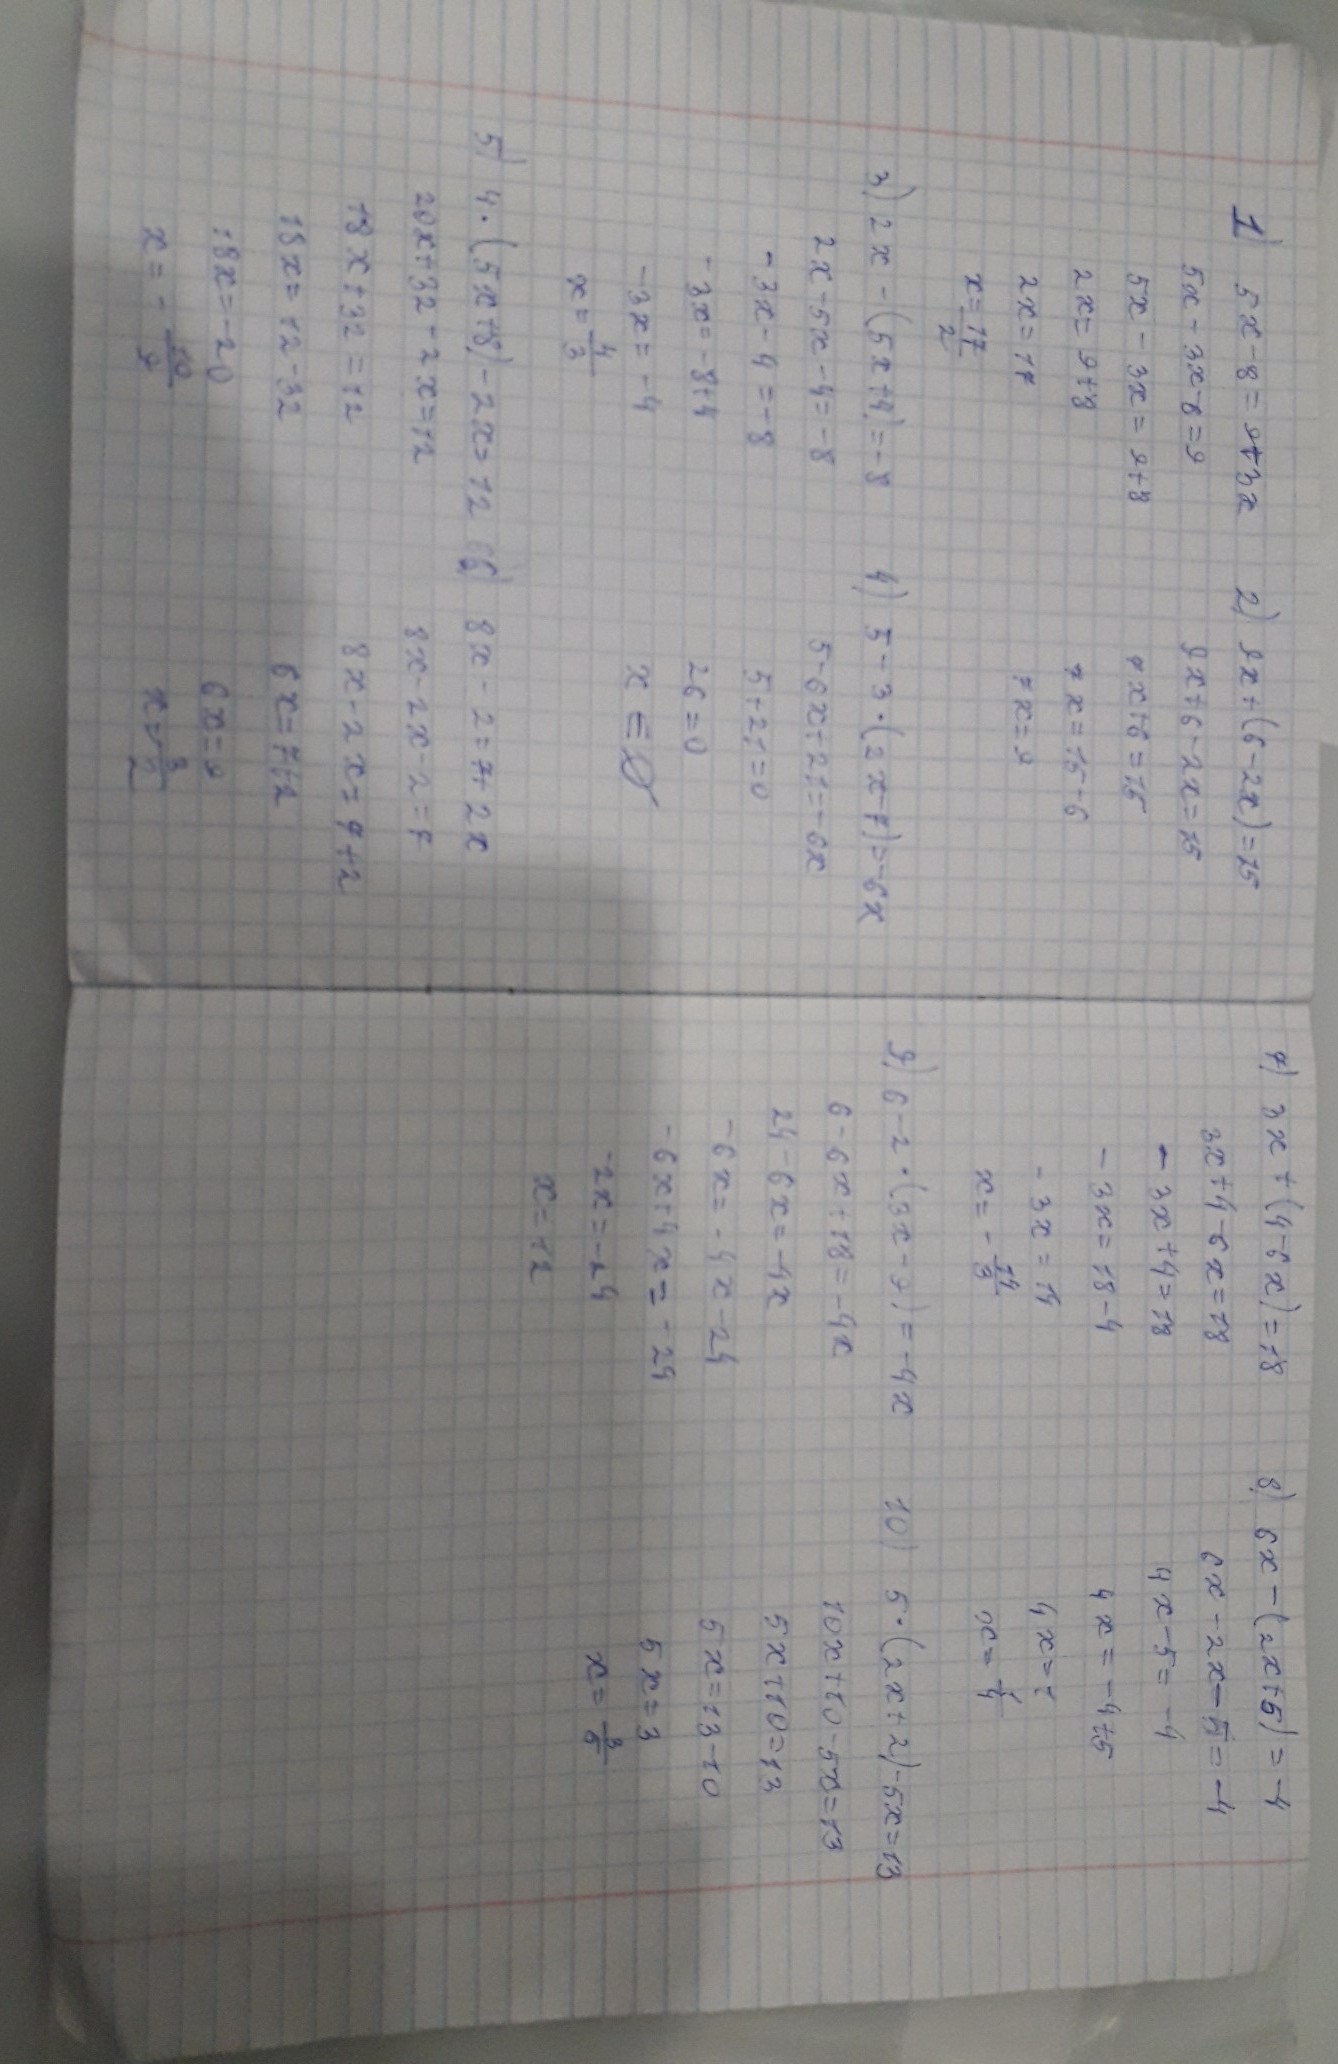 1) 5x-8=9+3x
5x-3x-8=9
5x-3x=9+8
2x=9+8
2x=17
x=17/2
2) 9x+(6-2x)=15
9x+6-2x=15
7x+6=15
7x=15-6
7x=9
3) 2x-(5x+4)=-8
2x-5x-4=-8
-3x-4=-8
-3x=-8+4
-3x=-4
x=4/3
4) 5-3·(2x-7)=-6x
5-6x+21=-6x
5+21=0
26=0
x∈∅
5) 4·(5x+8)-2x=12
20x+32-2x=12
18x+32=12
18x=12-32
18x=-20
x=-10/9
6) 8x-2=7+2x
8x-2x-2=7
8x-2x=7+2
6x=7+2
6x=9
x=3/2
7) 3x+(4-6x)=18
3x+4-6x=18
-3x+4=18
-3x=18-4
-3x=14
x=-14/3
8) 6x-(2x+5)=-4
6x-2x-5=-4
4x-5=-4
4x=-4+5
4x=1
x=1/4
9) 6-2·(3x-9)=-4x
6-6x+18=-4x
24-6x=-4x
-6x=-4x-24
-6x+4x=-24
-2x=-24
x=12
10) 5·(2x+2)-5x=13
10x+10-5x=13
5x+10=13
5x=13-10
5x=3
x=3/5